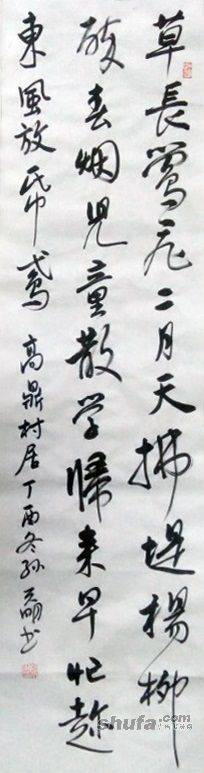 草長鶯飛二月天拂堤楊柳
醉春烟兒童散学歸来早忙趁
東風放帋鳶 高鼎村居丁酉冬孙明书
shufa.com